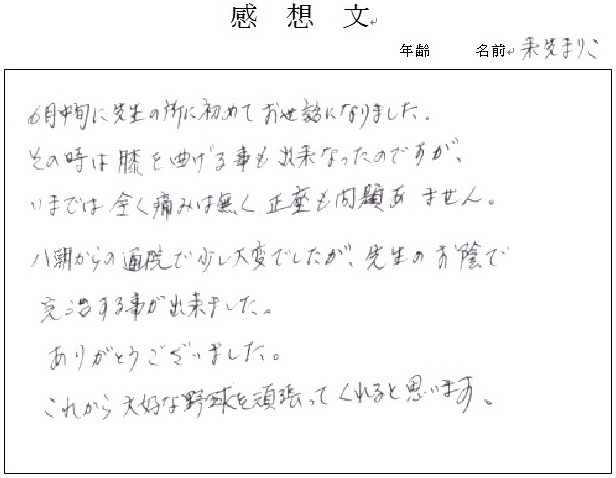 感想文
年齢 名前 まりこ
6月中旬に先生の所に初めてお世話になりました.
その時は膝を曲げる事も出来なったのですが、
いまでは全く痛みは無く正座も問題ありません。
八朝からの通院で少し大変でしたが、先生のお陰で
完治する事が出来ました。
ありがとうございました。
これから大好な野球を頑張ってくれると思います。